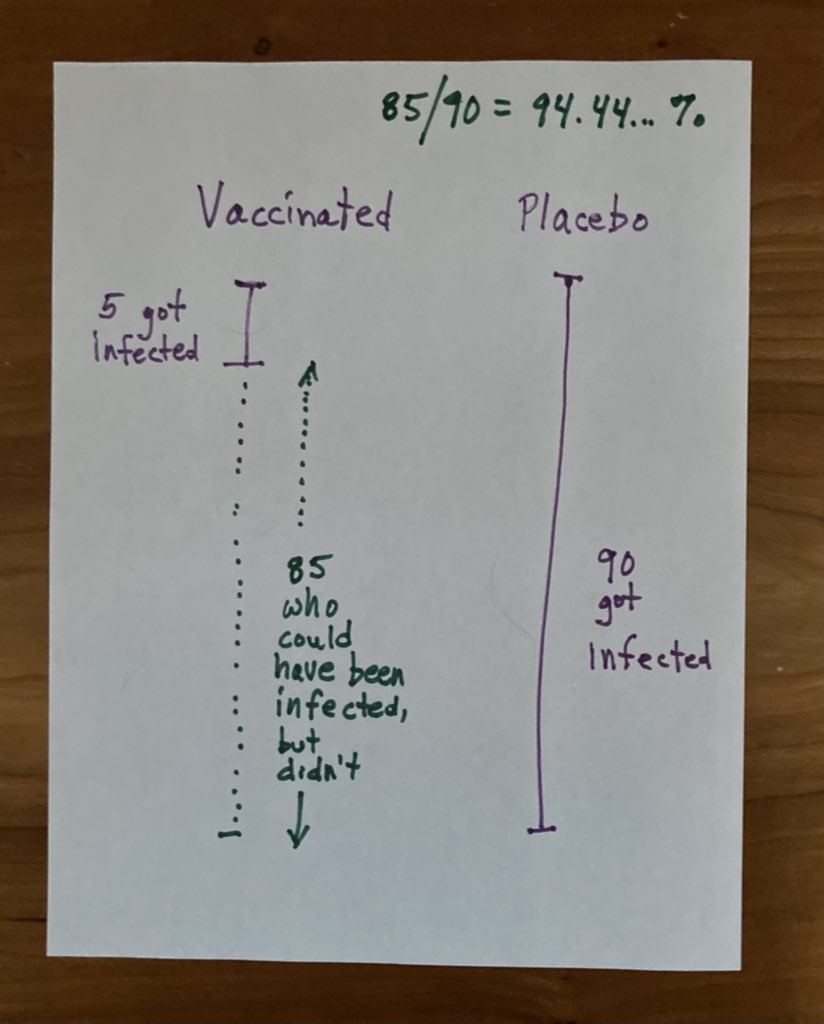 85/90 = 94.44... %
Vaccinated
Placebo
5 got
infected
85
who
could
have been
infected,
but
didn't
90
got
infected